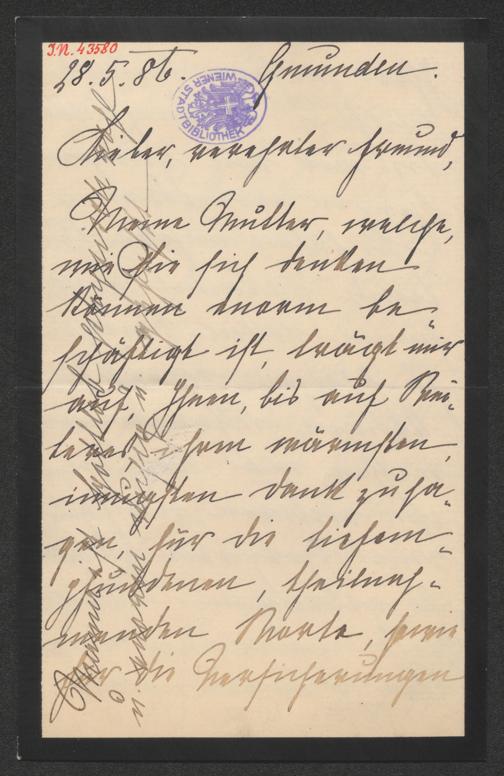 I.N. 43580
28.5.86. Gmunden.
WIENER STADTBIBLIOTHEK
Lieber, verehrter Freund,
Meine Mutter, welche,
wie Sie sich denken
können enorm be-
schäftigt ist, trägt mir
auf, Ihnen, bis auf Wei-
teres ihren wärmsten,
innigsten Dank zu sa-
gen, für die tiefem-
pfundenen, theilneh-
menden Worte, sowie
für die Versicherungen